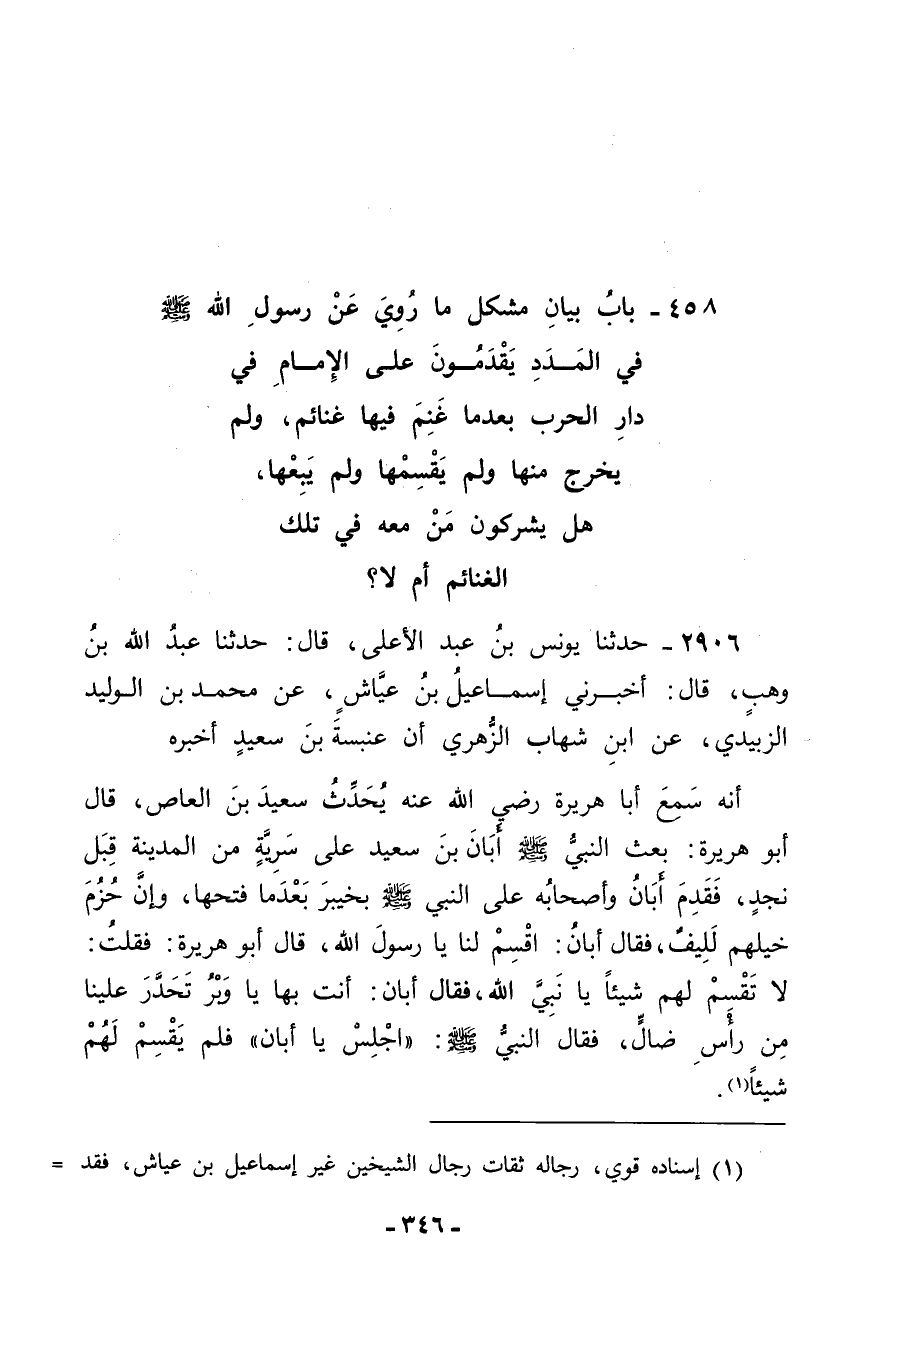 ٤٥٨ - بابُ بيانِ مشكل ما رُوِيَ عَنْ رسولِ الله ﷺ
في المَدَدِ يَقْدَمُونَ على الإِمامِ في
دارِ الحرب بعدما غَنِمَ فيها غنائم، ولم
يخرج منها ولم يَقْسِمْها ولم يَبِعْها،
هل يشركون مَنْ معه في تلك
الغنائم أم لا؟
٢٩٠٦ - حدثنا يونس بنُ عبد الأعلى، قال: حدثنا عبدُ الله بنُ
وهبٍ، قال: أخبرني إسماعيلُ بنُ عيَّاشٍ، عن محمد بن الوليد
الزبيدي، عن ابنِ شهاب الزُّهري أن عنبسةَ بنَ سعيدٍ أخبره
أنه سَمِعَ أبا هريرة رضي الله عنه يُحَدِّثُ سعيدَ بنَ العاص، قال
أبو هريرة: بعث النبيُّ ﷺ أَبَانَ بنَ سعيد على سَرِيَّةٍ من المدينة قِبَل
نجدٍ، فَقَدِمَ أَبَانُ وأصحابُه على النبي ﷺ بخيبرَ بَعْدَما فتحها، وإنَّ حُزُمَ
خيلهم لَلِيفٌ، فقال أبانُ: اقْسِمْ لنا يا رسولَ الله، قال أبو هريرة: فقلتُ:
لا تَقْسِمْ لهم شيئاً يا نَبِيَّ الله، فقال أبان: أنت بها يا وَبْرُ تَحَدَّرَ علينا
مِن رأْسِ ضالٍّ، فقال النبيُّ ﷺ: «اجْلِسْ يا أبان» فلم يَقْسِمْ لَهُمْ
شيئاً(١).
(١) إسناده قوي، رجاله ثقات رجال الشيخين غير إسماعيل بن عياش، فقد =
- ٣٤٦ -